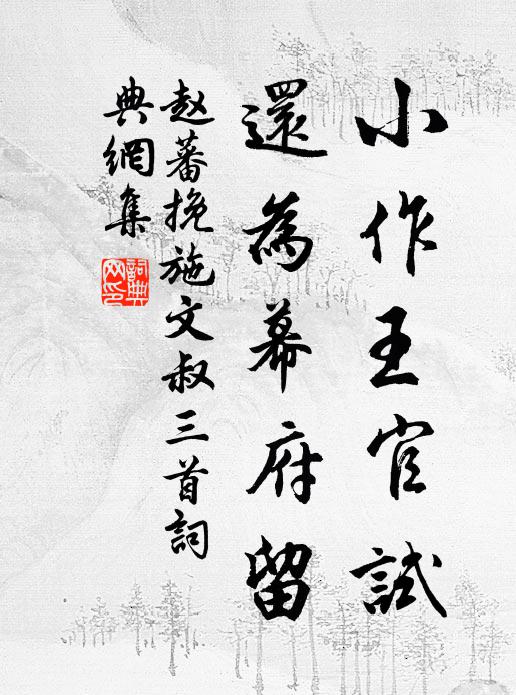 小作王官試
還為幕府留
赵蕃挽施文叔三首詞
典網集
詞典
网印